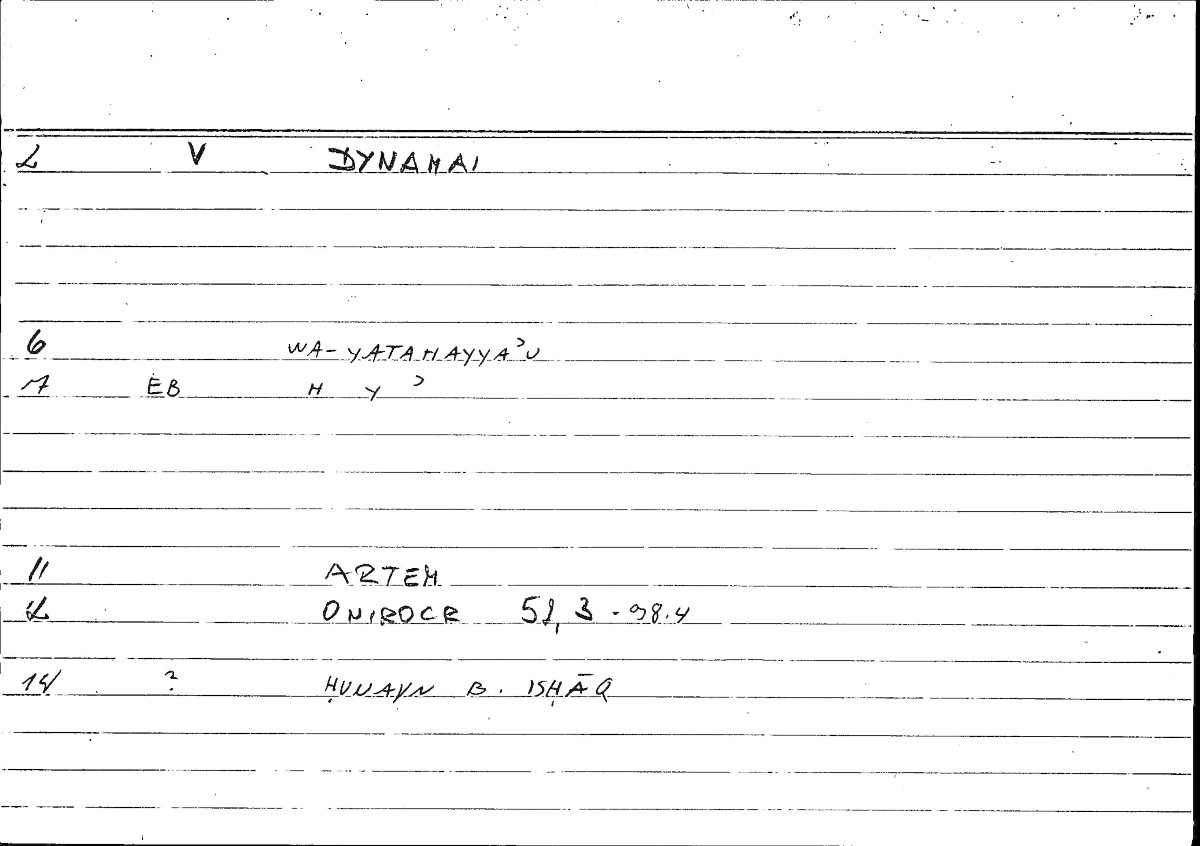 2 V DYNAMAI
6 WA-YATAHAYYAʾU
7 EB H Y ʾ
11 ARTEM
12 ONIROCR 52, 3 - 98.4
14 ? ḤUNAYN B. ISḤĀQ